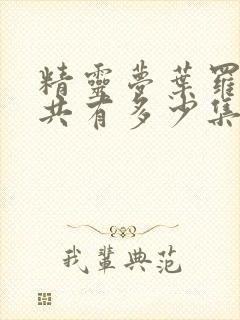 精靈夢葉羅
共有多少集
我輩典范